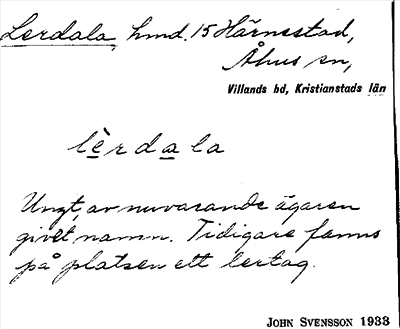 Lerdala, hmd. 15 Härnestad,
Åhus sn,
Villands hd, Kristianstads län
lèrdala
Ungt, av nuvarande ägaren
givet namn. Tidigare fanns
på platsen ett lertag.
JOHN SVENSSON 1933